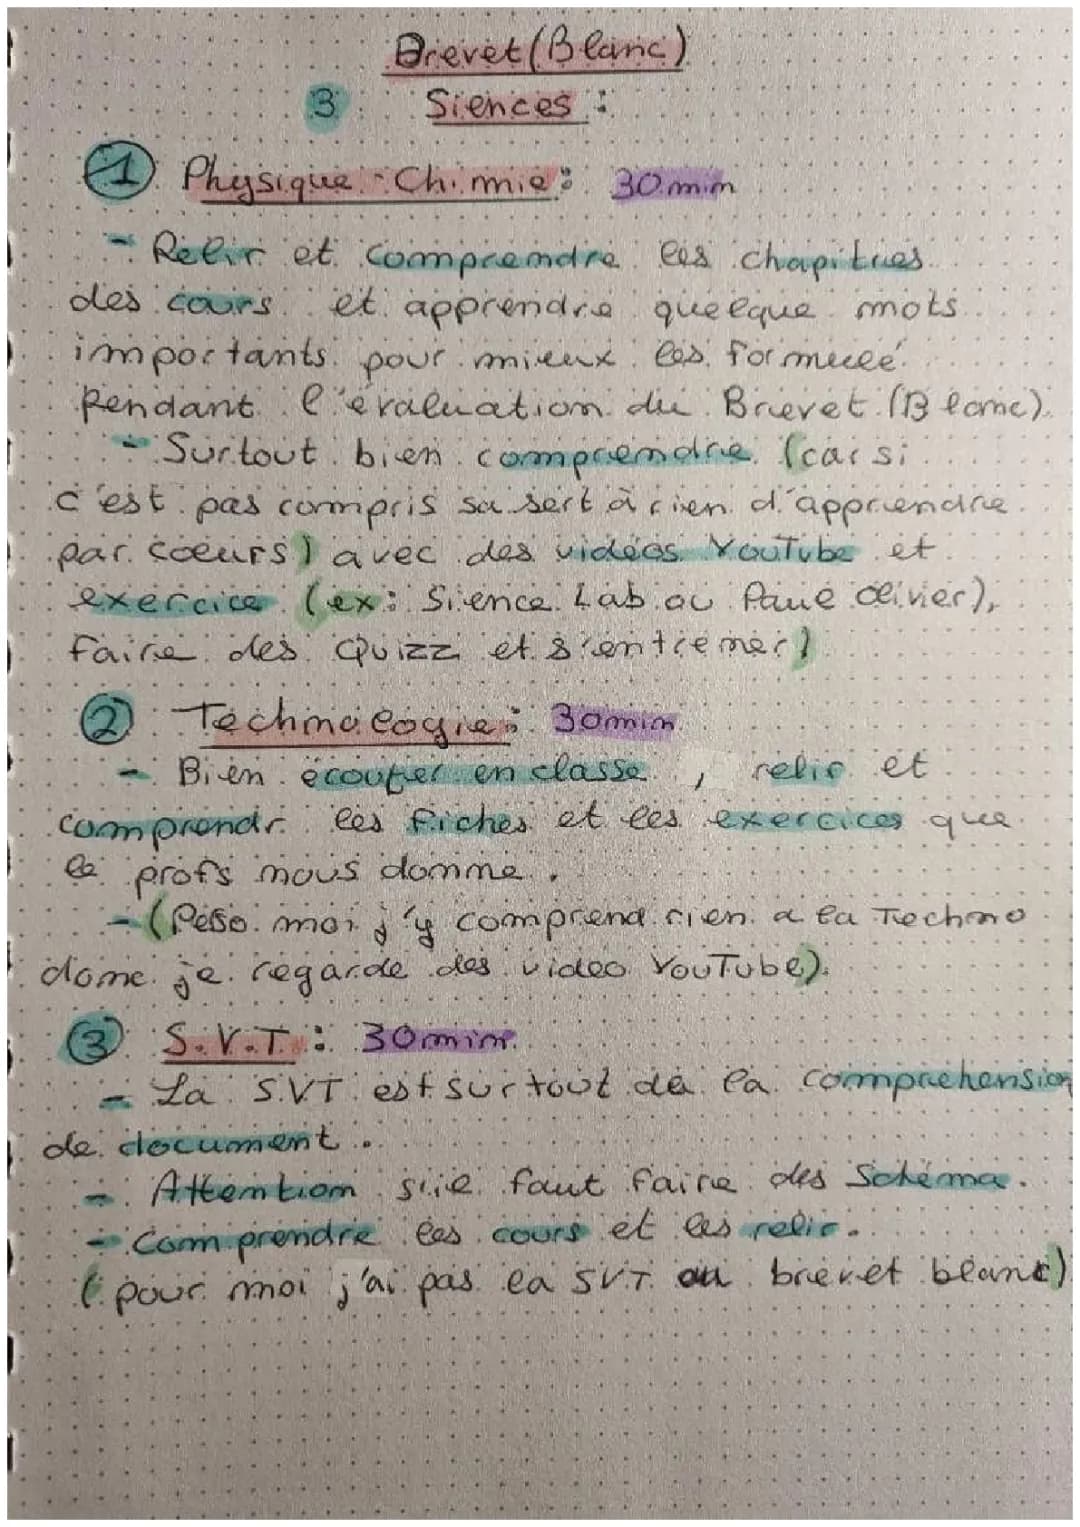 Brevet (Blanc)
3 Siences :
1 Physique-Chimie : 30min
- Relir et comprendre les chapitres
des cours et apprendre quelque mots
importants pour mieux les formulé
pendant l'évaluation du Brevet (Blanc).
- Surtout bien comprendre (car si
c'est pas compris sa sert à rien d'apprendre
par cœurs) avec des vidéos YouTube et
exercice (ex : Sience Lab ou Paul Olivier),
faire des Quizz et s'entrener)
2 Technologie : 30min
- Bien écouter en classe , relir et
comprendr les fiches et les exercices que
le profs nous donne .
- (Perso moi j'y comprend rien a la Techno
donc je regarde des video YouTube).
3 S.V.T. : 30min.
- La SVT est surtout de la compréhension
de document .
- Attention s'il faut faire des Schéma .
- Comprendre les cours et les relir .
( pour moi j'ai pas la SVT au brevet blanc)